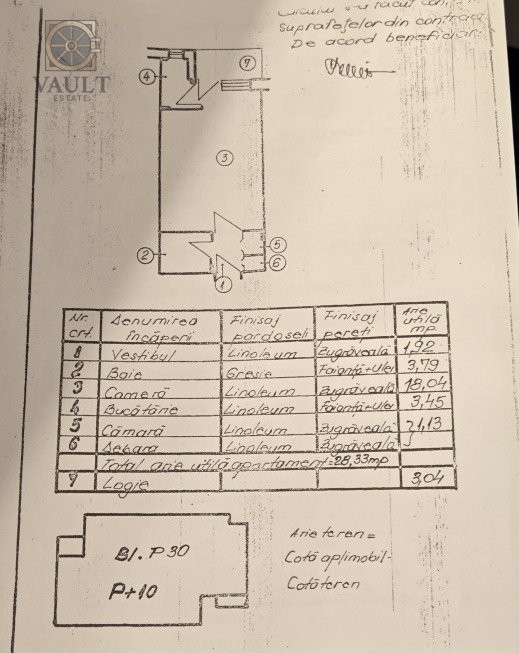 Suprafețelor din contrac
De acord beneficiar
VAULT
ESTATE
4
7
3
2
5
6
1
Nr. crt. Denumirea încăperii Finisaj pardoseli Finisaj pereți Arie utilă mp.
1 Vestibul Linoleum Zugrăveală 1,92
2 Baie Gresie Faianță+ulei 3,79
3 Cameră Linoleum Zugrăveală 18,04
4 Bucătărie Linoleum Faianță+ulei 3,45
5 Cămară Linoleum Zugrăveală 1,13
6 Debara Linoleum Zugrăveală
Total arie utilă apartament=28,33mp
7 Logie 3,04
Bl. P30
P+10
Arie teren=
Cotă ap/imobil-
Cotă teren